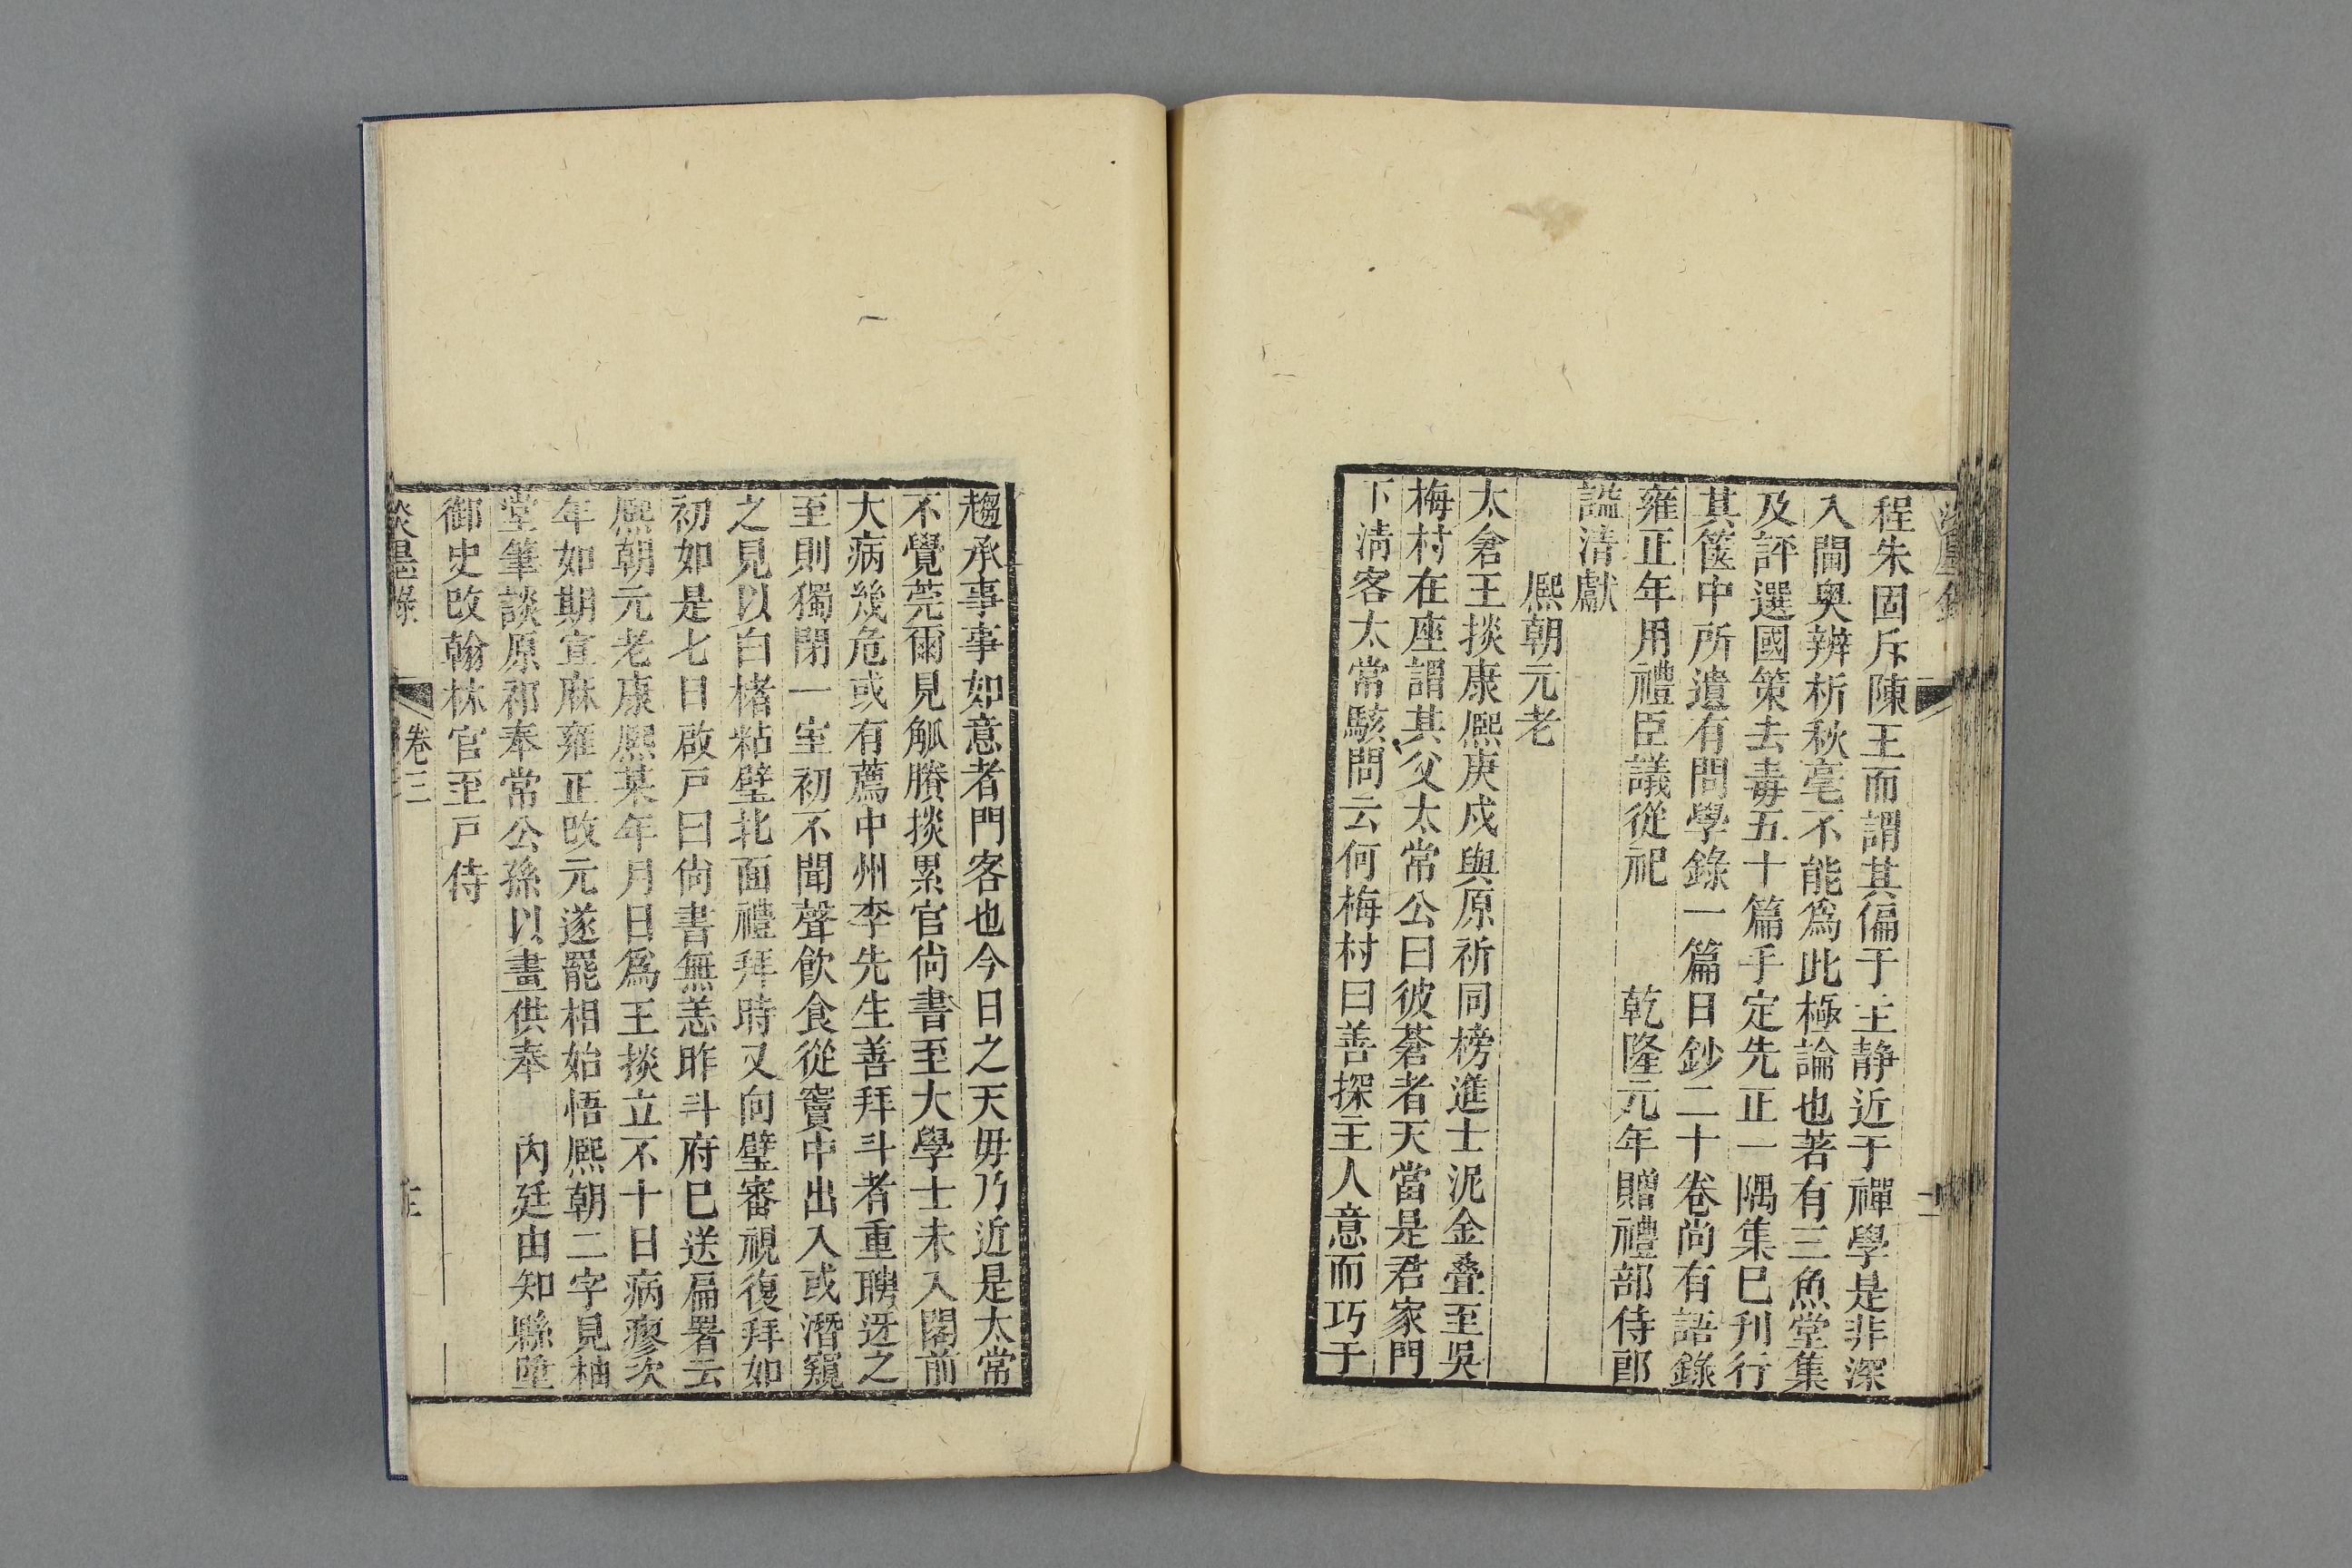 程朱固斥陳王而謂其偏于主靜近于禪學是非深
入閫奥辨析秋毫不能爲此極論也著有三魚堂集
及評選國策去毒五十篇手定先正一隅集巳刊行
其篋中所遺有問學錄一篇日鈔二十卷尚有語錄
雍正年用禮臣議從祀 乾隆元年贈禮部侍郎
謚清獻
熙朝元老
太倉王掞康熙庚戍與原祈同榜進士泥金叠至吳
梅村在座謂其父太常公曰彼蒼者天當是君家門
下清客太常駭問云何梅村曰善探主人意而巧于
趨承事事如意者門客也今日之天毋乃近是太常
不覺莞爾見觚賸掞累官尚書至大學士未入閣前
大病幾危或有薦中州李先生善拜斗者重聘迓之
至則獨閉一室初不聞聲飲食從竇中出入或潛窺
之見以白楮粘壁北面禮拜時又向壁審視復拜如
初如是七日啟戸曰尚書無恙昨斗府巳送扁署云
熙朝元老康熙某年月日爲王掞立不十日病瘳次
年如期宣麻雍正改元遂罷相始悟熙朝二字見柚
堂筆談原祁奉常公孫以畫供奉 内廷由知縣墮
御史改翰林官至戸侍
淡墨錄 卷三